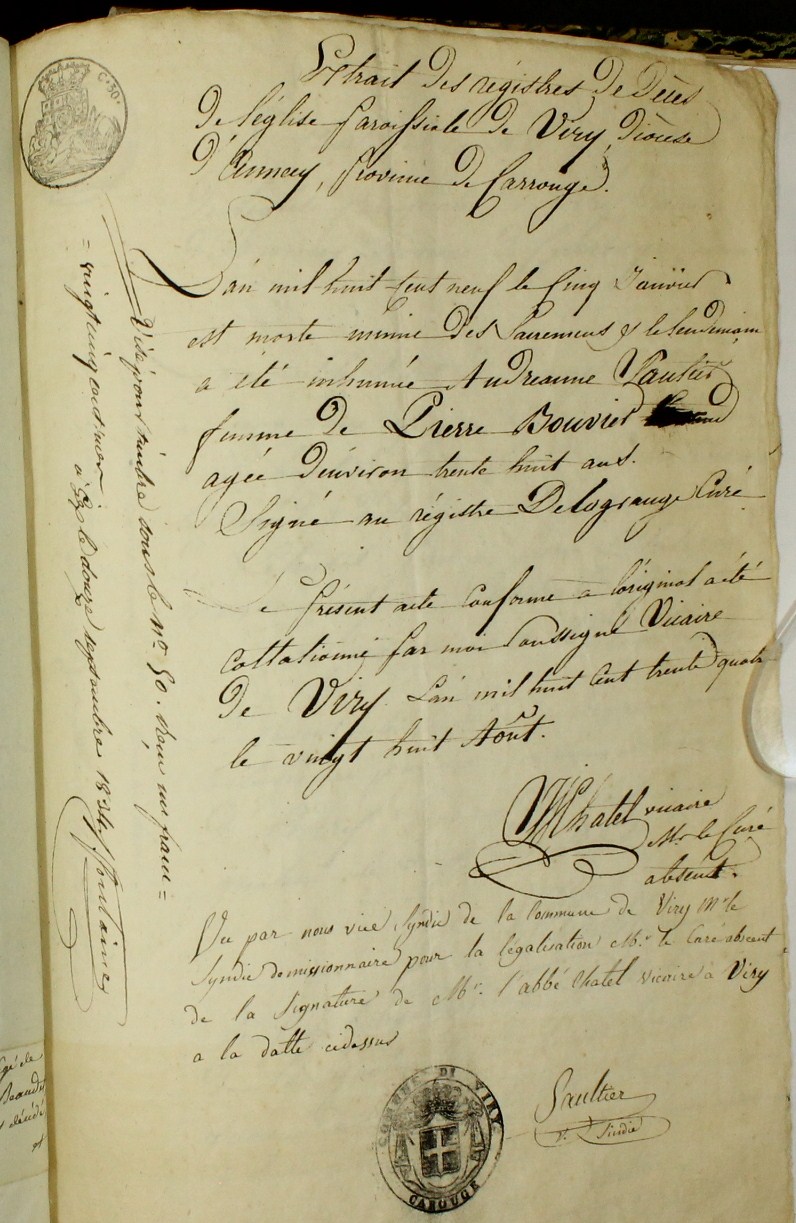 C. 50.
Extrait des régistres de Décès
de l'église paroissiale de Viry, diocese
d'Annecy, province de Carrouge.
L'an mil huit cent neuf le cinq Janvier
est morte munie des Sacremens & le lendemain
a été inhumée Andréanne Saultier
femme de Pierre Bouvier
agée d'environ trente huit ans.
Signé au régistre Delagrange Curé
Le présent acte conforme a l'original a été
collationné par moi soussigné Vicaire
de Viry L'an mil huit cent trente quatre
le vingt huit Août.
Chatel vicaire
Mr. le Curé
absent.
Vu par nous vice Syndic de la Commune de Viry Mr le
Syndic demissionnaire pour la légalisation Mr. le Curé absent
de la Signature de Mr. l'abbé Chatel vicaire à Viry
a la datte cidessus
Saultier
v. Sindic
COMMUNE DI VIRY
CAROUGE
Visé pour timbre sous le no. 50. reçu un franc =
= vingt cinq centimes
à Gex le douze septembre 1834